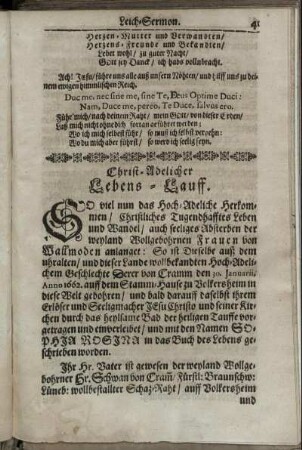 Leich-Sermon. 41
Hertzen-Mutter und Verwandten/
Hertzens-Freunde und Bekandten/
Lebet wohl/ zu guter Nacht/
Gott sey Danck/ ich habs vollnbracht.
Ach! Jesu/ führe uns alle auß unsern Nöhten/ und hilff uns zu dei-
nem ewigen himmlischen Reich.
Duc me, nec sine me, sine Te, Deus Optime Duci:
Nam, Duce me, pereo, Te Duce, salvus ero.
Führ mich/ nach deinem Raht/ mein Gott/ von dieser Erden/
Laß mich nicht ohne dich fortan geführet werden:
Wo ich mich selbest führ/ so muß ich selbst verzehrn:
Wo du mich aber führst/ so werd ich seelig seyn.
Christ-Adelicher
Lebens-Lauff.
SO viel nun das Hoch-Adeliche Herkom-
men/ Christliches Tugendhafftes Leben
und Wandel/ auch seeliges Absterben der
weyland Wollgebohrnen Frauen von
Wallmoden anlanget: So ist Dieselbe auß dem
uhralten/ und dieser Lande wolbekandten Hoch-Adeli-
chem Geschlechte Derer von Cramm den 30. Januarii,
Anno 1662. auff dem Stamm-Hause zu Volkersheim in
diese Welt gebohren/ und bald darauff daselbst ihrem
Erlöser und Seeligmacher JEsu Christo und seiner Kir-
chen durch das heyllame Bad der heiligen Tauffe vor-
getragen und einverleibet/ und mit den Namen SO-
PHIA ROSINA in das Buch des Lebens ge-
schrieben worden.
Ihr Hr. Vater ist gewesen der weyland Wollge-
bohrner Hr. Schwan von Cram/ Fürstl: Braunschw:
Lüneb: wollbestallter Schaz-Raht/ auff Volkersheim
und